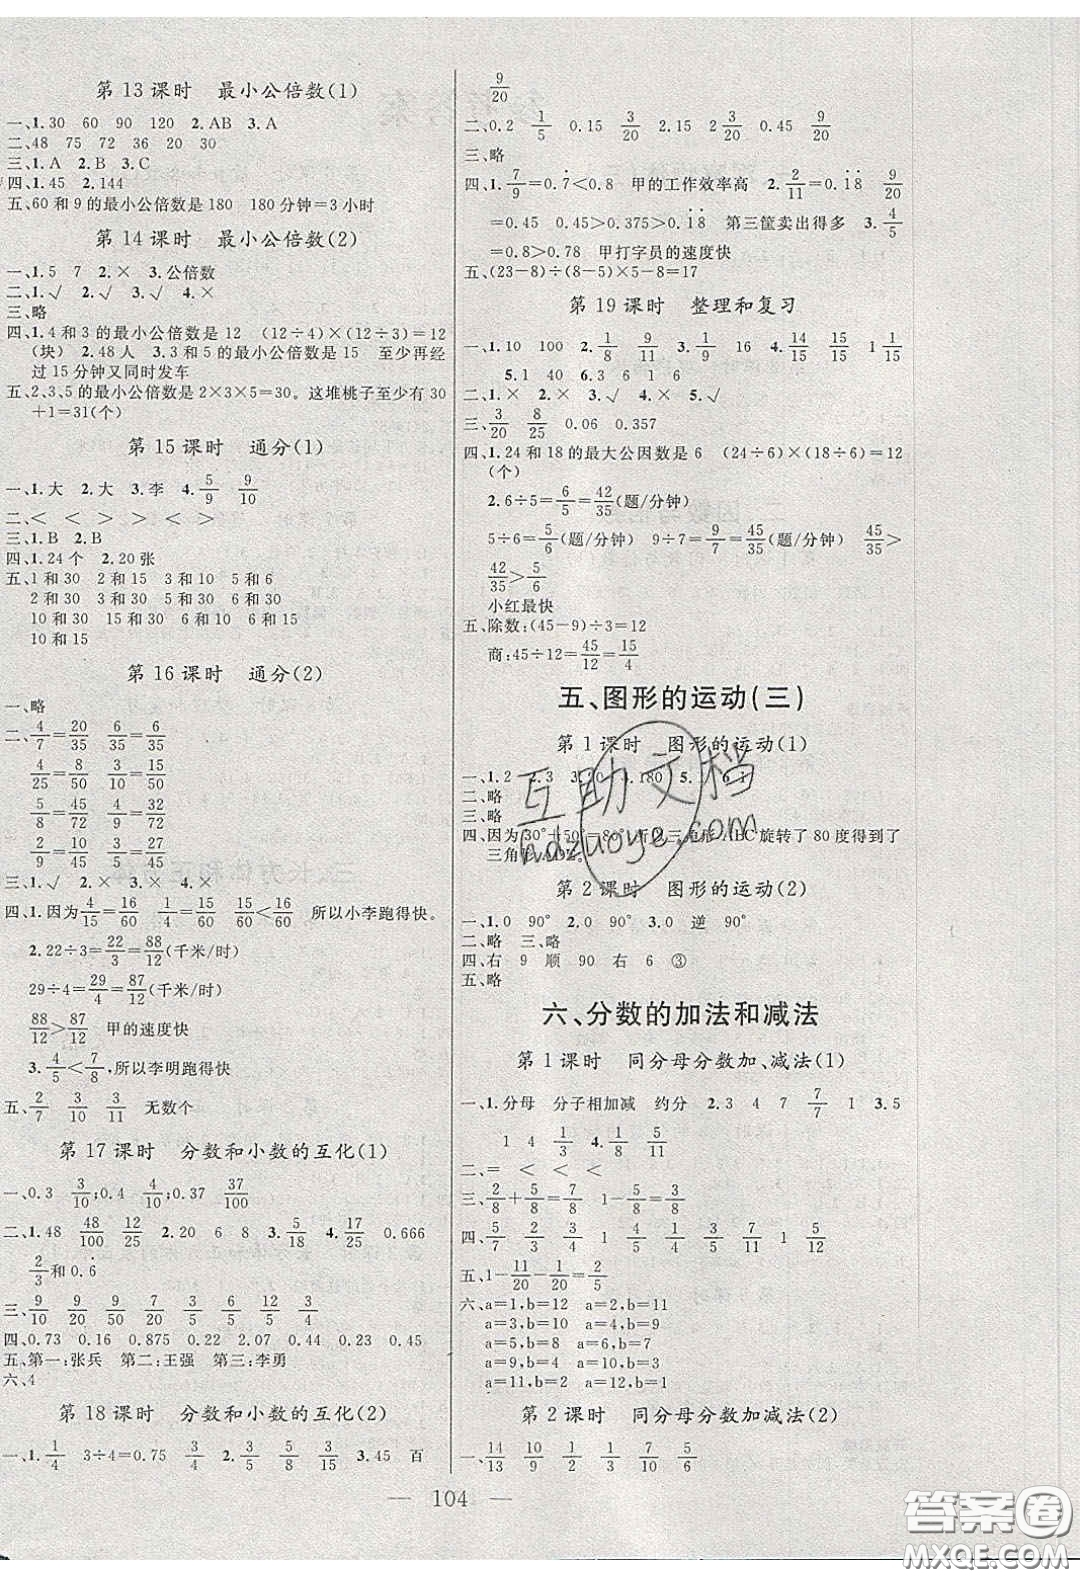 第13课时 最小公倍数(1)
一、1.30 60 90 120 2.AB 3.A
二、48 75 72 36 20 30
三、1.A 2.B 3.C
四、1.45 2.144
五、60和9的最小公倍数是180 180分钟=3小时
第14课时 最小公倍数(2)
一、1.5 7 2.× 3.公倍数
二、1.√ 2.√ 3.√ 4.×
三、略
四、1.4和3的最小公倍数是12 (12÷4)×(12÷3)=12
(块) 2.48人 3.3和5的最小公倍数是15 至少再经
过15分钟又同时发车
五、2、3、5的最小公倍数是2×3×5=30。这堆桃子至少有30
+1=31(个)
第15课时 通分(1)
一、1.大 2.大 3.李 4.5/9 9/10
二、< < > > < >
三、1.B 2.B
四、1.24个 2.20张
五、1和30 2和15 3和10 5和6
2和30 6和15 5和30 6和30
10和30 15和30 6和10
10和15
第16课时 通分(2)
一、略
二、4/7=20/35 6/6=6/35
4/25=8/50 4/5=40/50
5/8=45/72 4/9=32/72
2/9=10/45 6/15=29/45
三、1.√ 2.× 3.× 4.×
四、1.因为4/15=16/60 1/4=15/60 15/60<16/60 所以小李跑得快。
2.22÷3=22/3=88/12(千米/时)
29÷4=29/4=87/12(千米/时)
88/12>87/12 甲的速度快
3.4/5<7/8,所以李明跑得快
五、2/7 3/10 3/11 无数个
第17课时 分数和小数的互化(1)
一、0.3 3/10;0.4 4/10;0.37 37/100
二、1.48 48/100 12/25 2.20 6 8 3.5/18 4.17/25 0.666
2/3和0.6̇
三、9/10 9/20 9/50 7/20 3/5 6/5 12/25 3/4
四、0.73 0.16 0.875 0.22 2.07 0.44 0.23 0.45
五、第一:张兵 第二:王强 第三:李勇
六、4
第18课时 分数和小数的互化(2)
一、1.1/4 3÷4=0.75 3/4 2.3/5 3/5 3/5 3.45 百
9/20
二、0.2 1/5 0.15 3/20 2.15 2 3/20 0.45 9/20
三、略
四、1.7/9=0.7̇<0.8 甲的工作效率高 2.2/11=0.1̇8̇ 9/20
=0.45 0.45>0.375>0.1̇8̇ 第三筐卖出得多 3.4/5
=0.8>0.78 甲打字员的速度快
五、(23-8)÷(8-5)×5-8=17
第19课时 整理和复习
一、1.10 100 2.1/8 9/11 3.1/9 16 4.14/15 15/15 1 1/15
5.1 40 6.3 6 1 6
二、1.× 2.× 3.√ 4.× 5.√
三、3/20 8/25 0.06 0.357
四、1.24和18的最大公因数是6 (24÷6)×(18÷6)=12
(个)
2.6÷5=6/5=42/35(题/分钟)
5÷6=5/6(题/分钟) 9÷7=9/7=45/35(题/分钟) 45/35>
42/35>5/6
小红最快
五、除数:(45-9)÷3=12
商:45÷12=45/12=15/4
五、图形的运动(三)
第1课时 图形的运动(1)
二、略
三、略
第2课时 图形的运动(2)
一、1.0 90° 2.0 90° 3.0 逆 90°
二、略 三、略
四、右 9 顺 90 右 6 ③
五、略
六、分数的加法和减法
第1课时 同分母分数加、减法(1)
一、1.分母 分子相加减 约分 2.3 4 7 7/7 1 3.5
1 4 1/3 4.1/8 5/11
二、= < < <
三、2/8+5/8=7/8 1-5/8=3/8
四、5/7 2/5 3/4 4/9 2/9 2/3 1/2 1/3
五、1-11/20-1/20=2/5
六、a=1,b=12 a=2,b=11
a=3,b=10 a=4,b=9
a=5,b=8 a=6,b=7
a=7,b=6 a=8,b=5
a=9,b=4 a=10,b=3
a=11,b=2 a=12,b=1
第2课时 同分母分数加减法(2)
一、14/13 10/10 1/9 1/2 8/15 1/5 2/3 1/4
104
互助文档
hdzuoye.com
答案圈
MXQE.COM